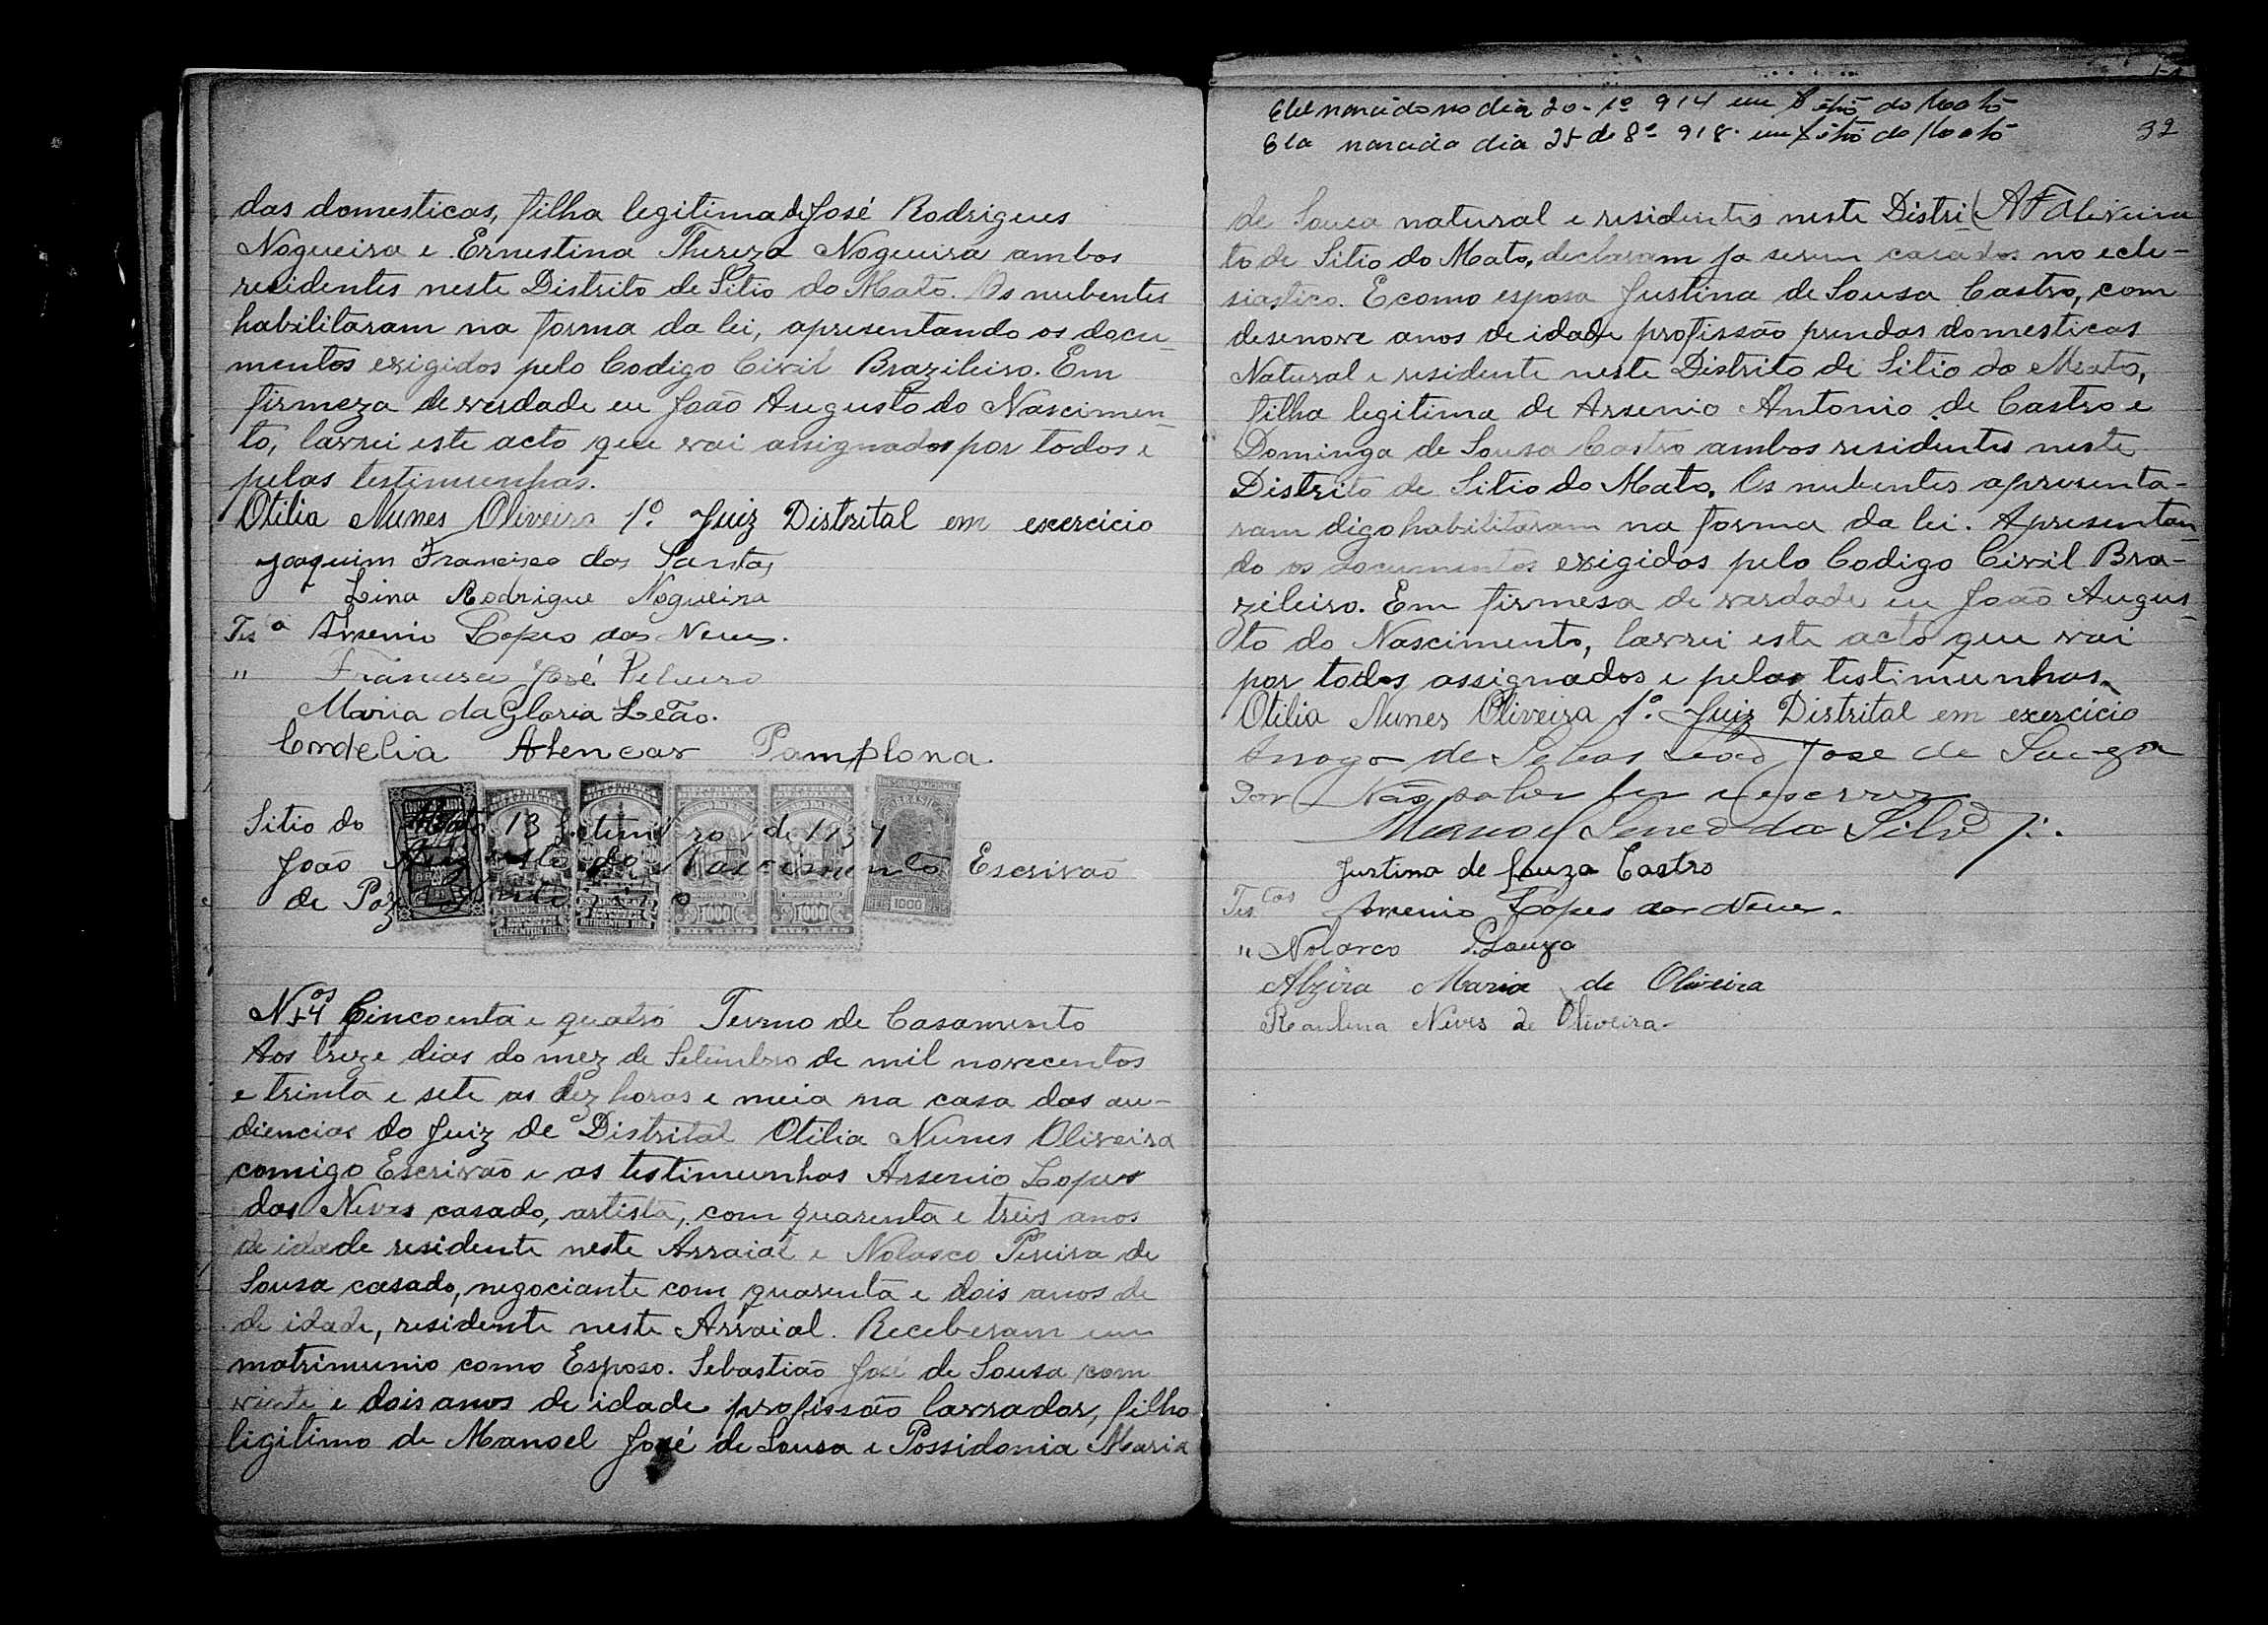 das domesticas, filha legitima de José Rodrigues
Nogueira e Ernestina Thereza Nogueira ambos
residentes neste Distrito de Sitio do Mato. Os nubentes
habilitaram na forma da lei, apresentando os docu-
mentos exigidos pelo Codigo Civil Brazileiro. Em
firmeza de verdade eu João Augusto do Nascimen-
to, lavrei este acto que vai assignados por todos e
pelas testimunhas.
Otilia Nunes Oliveira 1º. Juiz Distrital em exercicio
Joaquim Francisco dos Santos
Lina Rodrigue Nogueira
Tesª Arsenio Lopes das Neves.
" Francisco José
Maria da Gloria Leão.
Cordelia Alencar Pamplona.
Sitio do Mato 13 Setembro de 1937
João Augusto do Nascimento Escrivão
de Paz
1000
1000
1000
DUZENTOS REIS
MIL REIS
MIL REIS
Nos 54 Cincoenta e quatro Termo de Casamento
Aos treze dias do mez de Setembro de mil novecentos
e trinta e sete as dez horas e meia na casa das au-
diencias do Juiz de Distrital Otilia Nunes Oliveira
comigo Escrivão e as testimunhas Arsenio Lopes
das Neves casado, artista, com quarenta e treis anos
de idade residente neste Arraial e Nolasco Pereira de
Sousa casado, negociante com quarenta e dois anos de
de idade, residente neste Arraial. Receberam em
matrimunio como Esposo. Sebastião José de Sousa com
vinte e dois anos de idade profissão lavrador, filho
ligitimo de Manoel José de Sousa e Possidonia Maria
Ele nascido no dia 20-1º 914 em Sitio do Mato
Ela nascida dia 25 de 8º 918 em Sitio do Mato
32
de Souca natural e residentes neste Distri- A F Oliveira
to de Sitio do Mato, declaram ja serem casados no ecle-
siastico. E como esposa Justina de Sousa Castro, com
desenove anos de idade profissão prendas domesticas
Natural e residente neste Distrito de Sitio do Mato,
filha legitima de Arsenio Antonio de Castro e
Dominga de Sousa Castro ambos residentes neste
Distrito de Sitio do Mato. Os nubentes apresenta-
ram digo habilitaram na forma da lei. Apresentan-
do os documentos exigidos pelo Codigo Civil Bra-
zileiro. Em firmesa de verdade eu João Augus-
to do Nascimento, lavrei este acto que vai
por todos assignados e pelas testimunhas.
Otilia Nunes Oliveira 1º. Juiz Distrital em exercicio
Arrogo de José de
Por Não saber ler e escrever
Manoel da Silva
Justina de Souza Castro
Tes.tas Arsenio Lopes das Neves.
" Nolasco P. Souza
Alzira Maria de Oliveira
Neves de Oliveira-